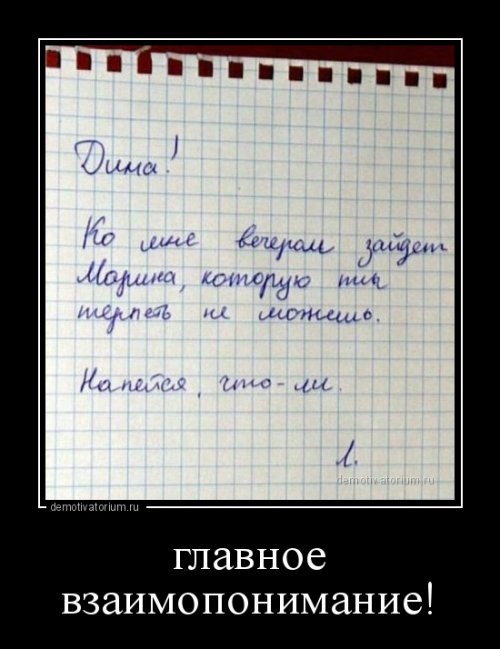 Дима!
Ко мне вечером зайдет
Марина, которую ты
терпеть не можешь.
Напейся, что-ли.
Л.
demotivatorium.ru
demotivatorium.ru
главное
взаимопонимание!